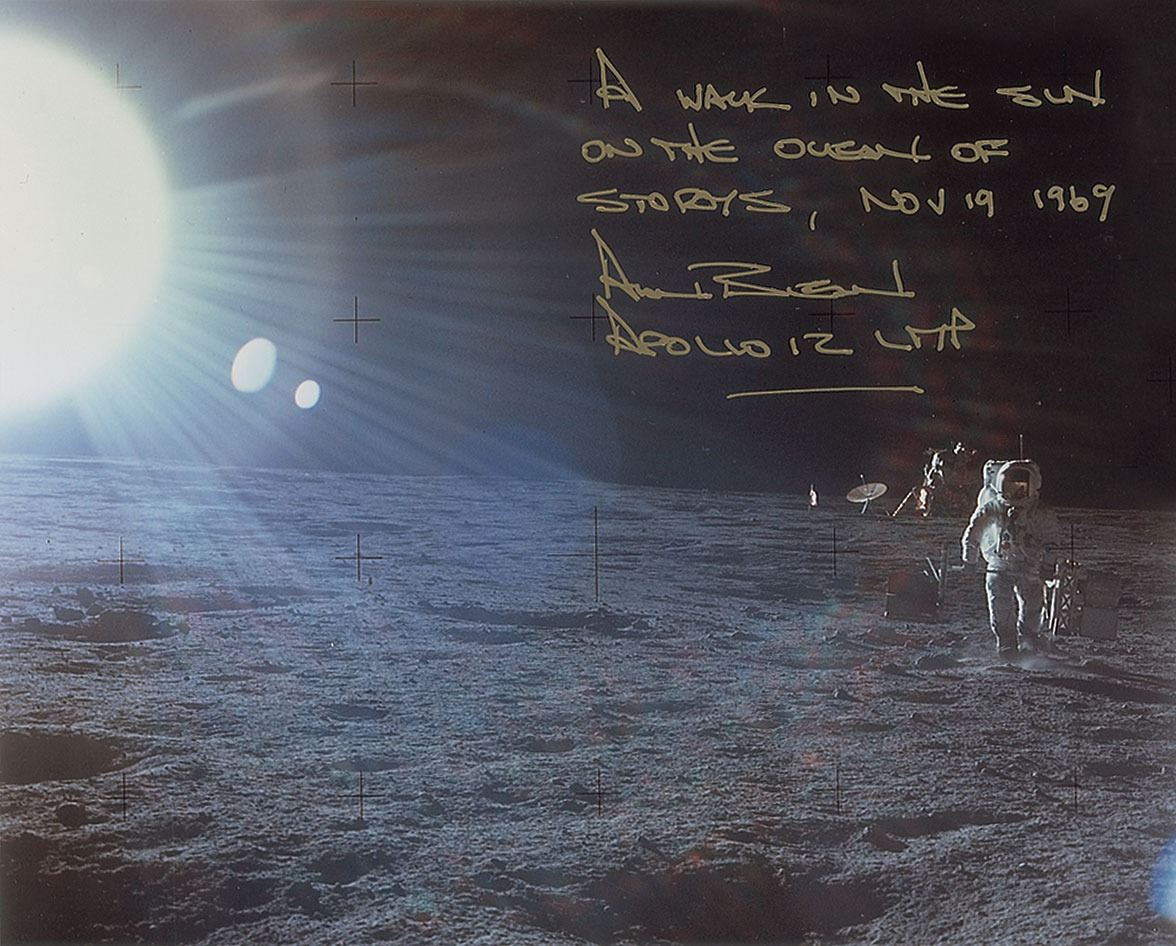 A WALK IN THE SUN
ON THE OCEAN OF
STORYS, NOV 19 1969
Alan Bean
APOLLO 12 LMP